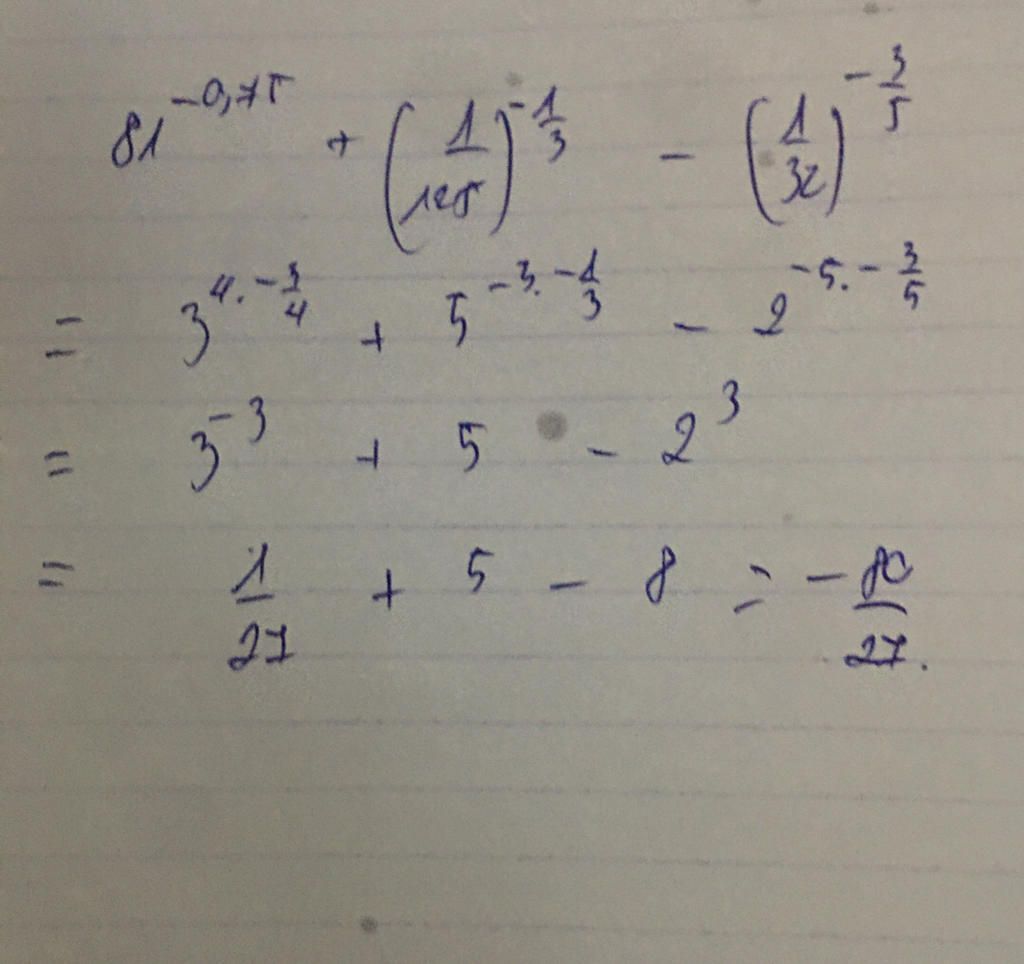 81^{-0,75} + (1/125)^{-1/3} - (1/32)^{-3/5}
= 3^{4.-3/4} + 5^{-3.-1/3} - 2^{-5.-3/5}
= 3^{-3} + 5 - 2^3
= 1/27 + 5 - 8 = -80/27.